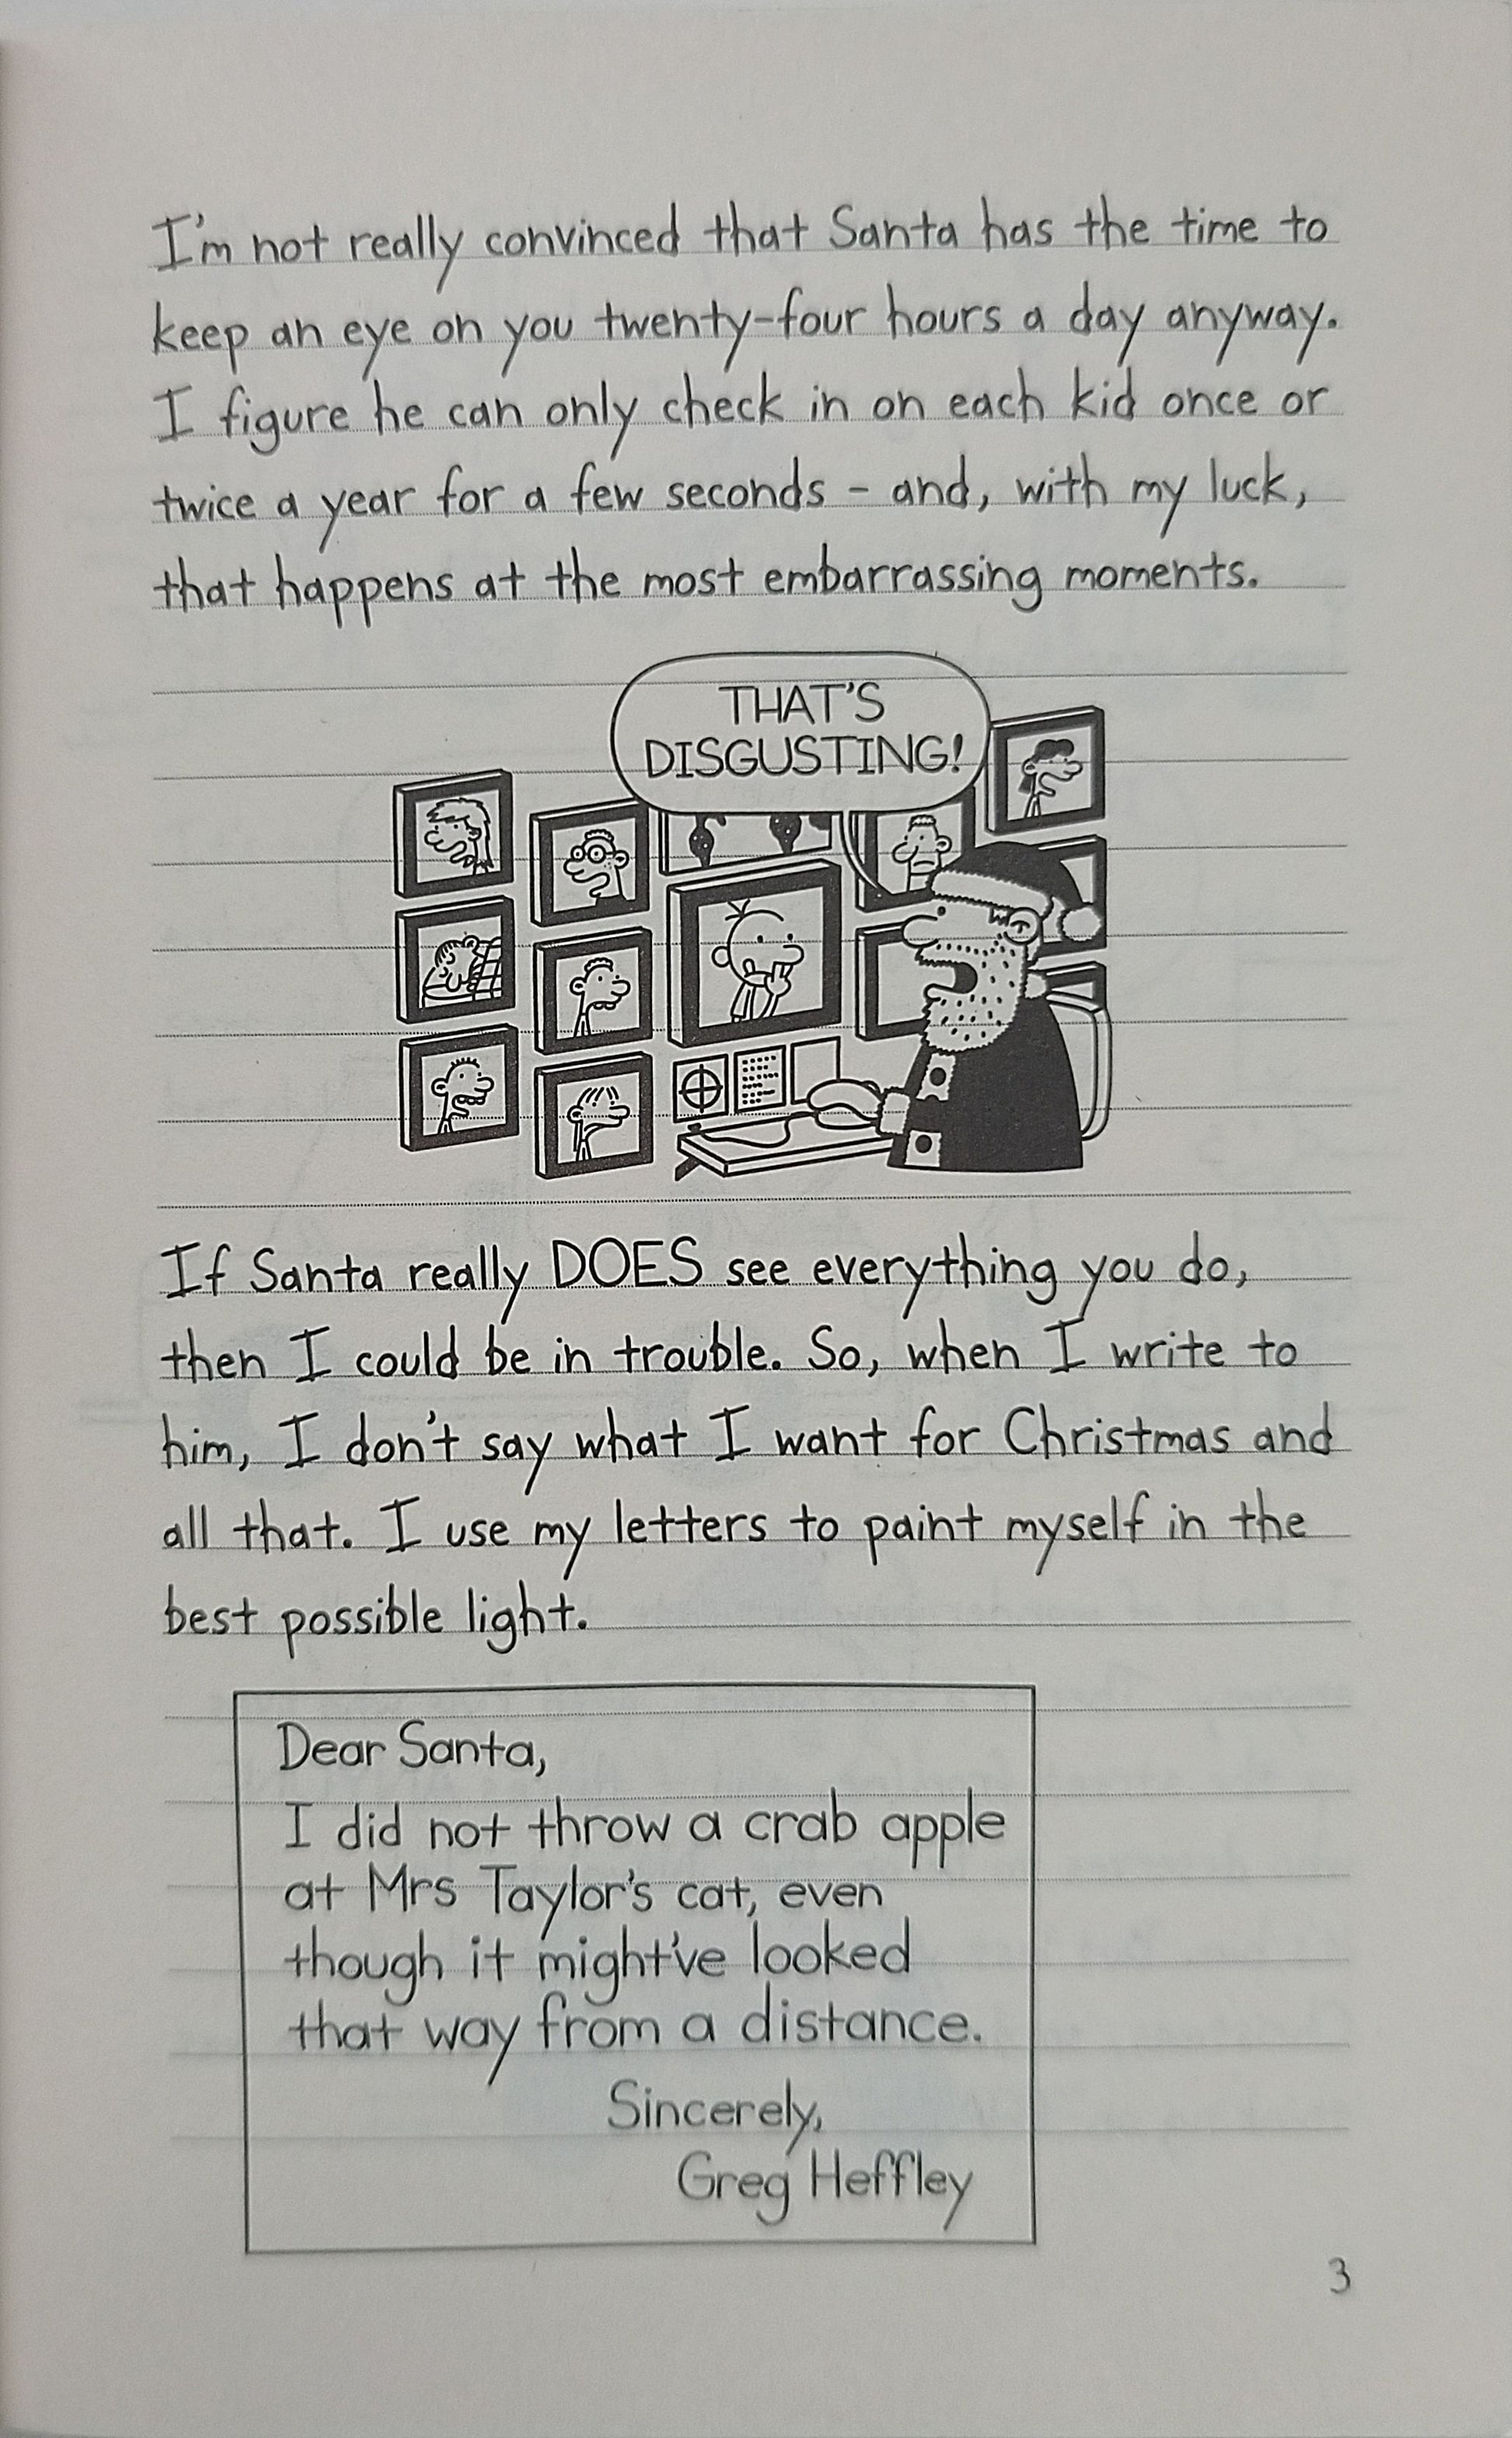 I'm not really convinced that Santa has the time to
keep an eye on you twenty-four hours a day anyway.
I figure he can only check in on each kid once or
twice a year for a few seconds - and, with my luck,
that happens at the most embarrassing moments.
THAT'S
DISGUSTING!
If Santa really DOES see everything you do,
then I could be in trouble. So, when I write to
him, I don't say what I want for Christmas and
all that. I use my letters to paint myself in the
best possible light.
Dear Santa,
I did not throw a crab apple
at Mrs Taylor's cat, even
though it might've looked
that way from a distance.
Sincerely,
Greg Heffley
3